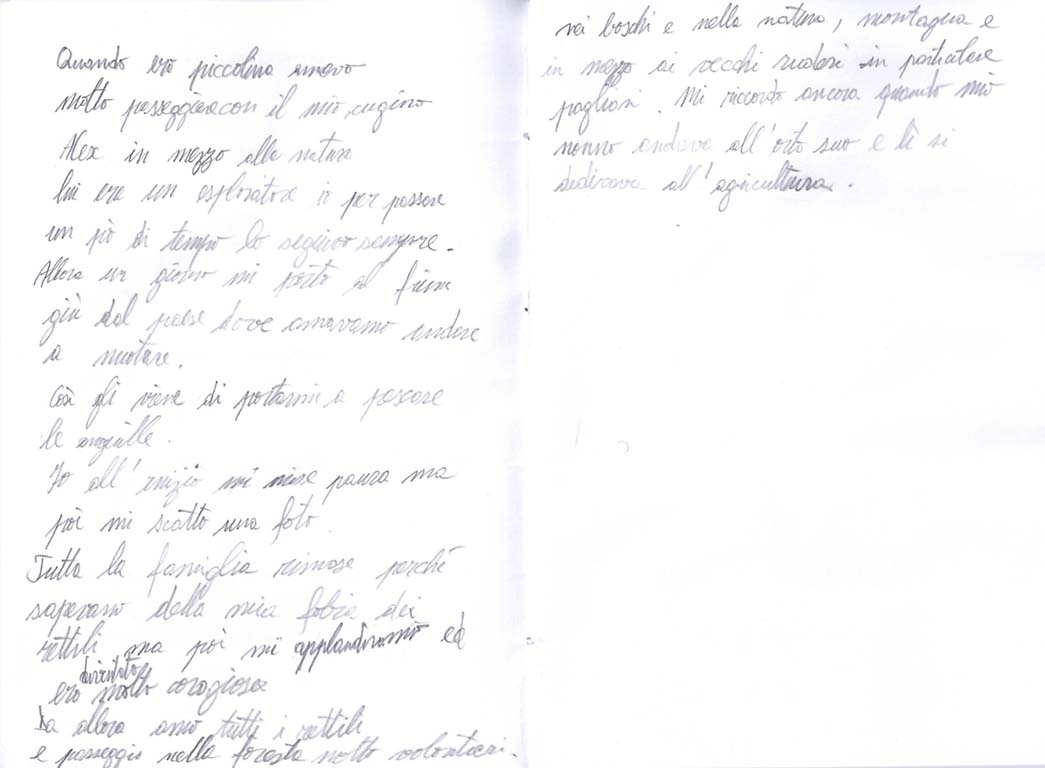 Quando ero piccolina amavo
molto passeggiare con il mio cugino
Alex in mezzo alla natura
lui era un esploratore e per passare
un pò di tempo lo seguivo sempre.
Allora un giorno mi porto al fiume
giù dal paese dove amavamo andare
a nuotare.
Così gli viene di portarmi a pescare
le anguille.
Io all'inizio mi mise paura ma
poi mi scatto una foto.
Tutta la famiglia rimase perchè
sapevano della mia fobia dei
rettili ma poi mi applaudirono ed
ero diventata molto coragiosa
Da allora amo tutti i rettili
e passeggio nella foresta molto volontieri.
nei boschi e nella natura, montagna e
in mezzo ai vecchi ruderi in particolare
pagliari. Mi riccordo ancora quando mio
nonno andava all'orto suo e lì si
dedicava all'agricultura.